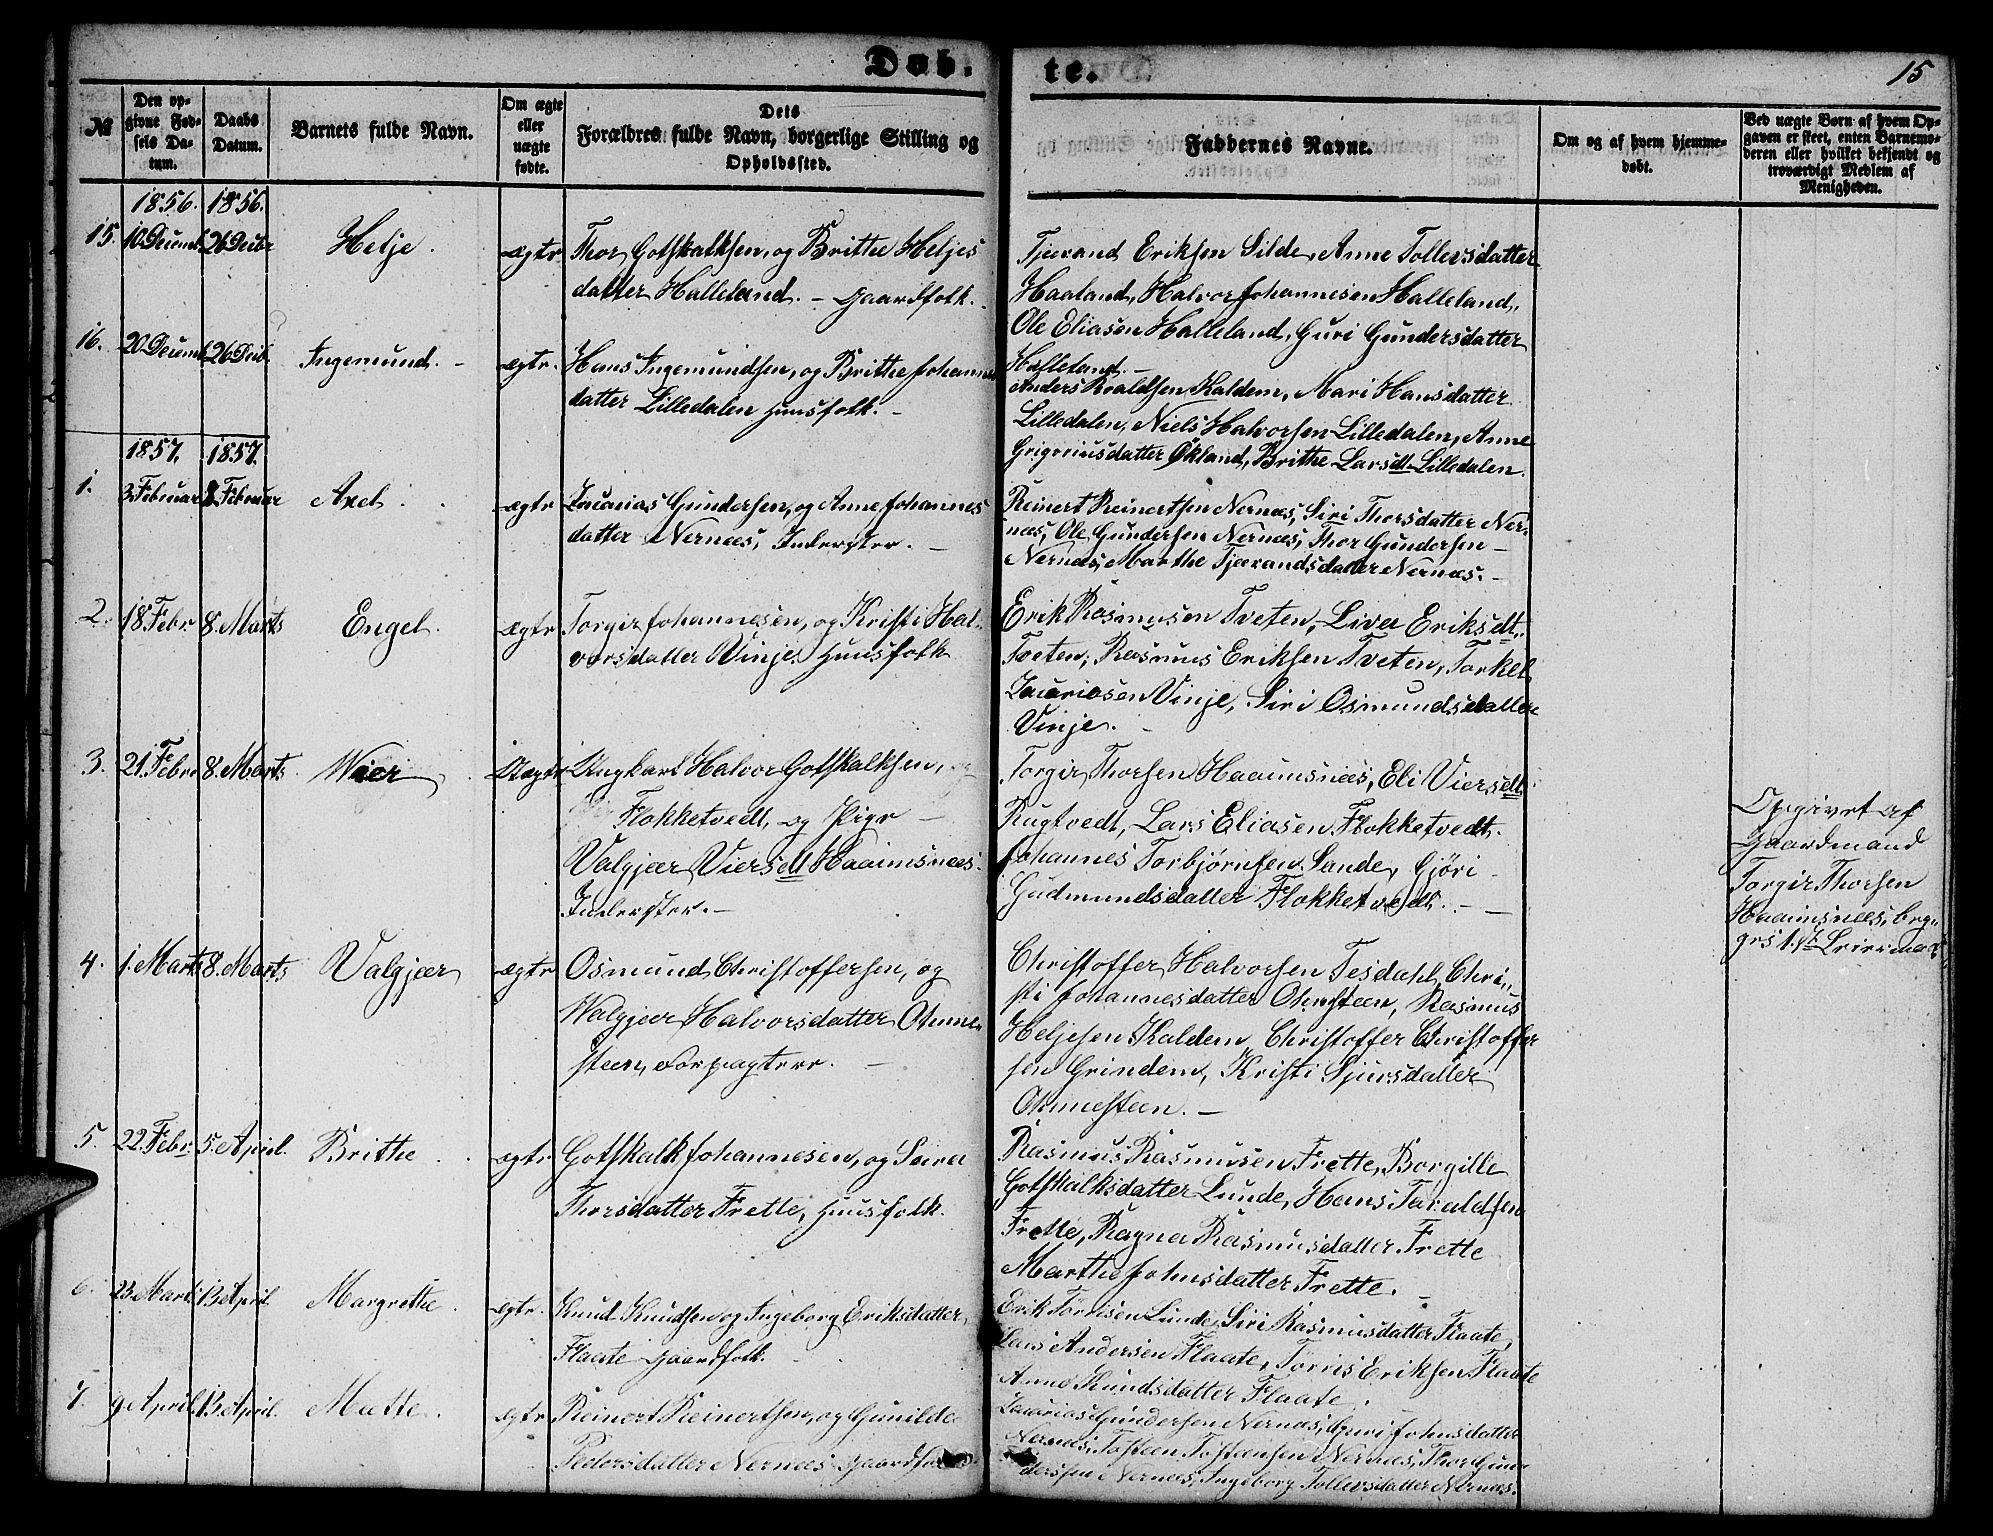 Døb.
te.
15
№
Den op-
givne Fød-
sels Da-
tum.
Daabs
Datum.
Barnets fulde Navn.
Om ægte
eller
uægte
fødte.
Dets
Forældres fulde Navn, borgerlige Stilling og
Opholdssted.
Faddernes Navne.
Om og af hvem hjemme-
døbt.
Ved uægte Børn af hvem Op-
gaven er skeet, enten Barnemo-
deren eller hvilket bekjendt og
troværdigt Medlem af
Menigheden.
1856. 1856.
15. 10 Decemb. 26 Decbr Helje. ægte Thor Gotskalksen, og Brithe Heljes
datter Halleland. – Gaardfolk.
Tjerand Eriksen Silde, Anne Tollevsdatter
Haaland, Halvor Johannesen Halleland,
Ole Eliasen Halleland, Guri Gundersdatter
Halleland. –
16. 20 Decemb. 26 Decb. Ingemund. – ægte. Hans Ingemundsen, og Brithe Johannes
datter Lilledalen Huusfolk. –
Anders Roaldsen Kaldem, Mari Hansdatter
Lilledalen, Niels Halvorsen Lilledalen, Anne
Grigoriusdatter Økland, Brithe Larsdt Lilledalen.
1857. 1857.
1. 3 Februar 8 Februar Axel. ægte Zacarias Gundersen, og Anne Johannes
datter Nernæs, Inderster. –
Reinert Reinertsen Nernæs, Siri Thorsdatter Ner-
næs, Ole Gundersen Nernæs, Thor Gundersen –
Nernæs, Marthe Tjerandsdatter Nernæs. –
2. 18 Febr. 8. Marts Engel. ægte Torgir Johannesen, og Kristi Hal-
vorsdatter Vinje. Huusfolk
Erik Rasmusen Tveten, Liva Eriksdt.
Tveten, Rasmus Eriksen Tveten, Torkel
Zacariasen Vinje, Siri Osmundsdatter
Vinje. –
3. 21. Febr. 8. Marts. Wier Uægte Ungkarl Halvor Gotskalksen,
Flokketvedt, og Pige –
Valgjær Viersdt Haaimsnæs.
Inderster. –
Torgir Thorsen Haaimsnæs, Eli Viersdt.
Rugtvedt, Lars Eliasen Flokketvedt.
Johannes Torbjørnsen Sande, Gjøri
Gudmundsdatter Flokketvedt. –
Opgivet af
Gaardmand
Torgir Thorsen
Haaimsnæs, beg-
4. 1. Marts 8. Marts Valgjær ægte Osmund Christoffersen, og
Walgjær Halvorsdatter Ohme-
steen, Forpagtere. –
Christoffer Halvorsen Tesdahl, Chri-
sti Johannesdatter Ohmsteen, Rasmus
Heljesen Kaldem, Christoffer Christoffer
sen Grindem, Kristi Sjursdatter
Ohmesteen. –
5. 22. Febr. 5. April. Brithe. ægte Gotskalk Johannesen, og Seira
Thorsdatter Frette, Huusfolk.
Rasmus Rasmusen Frette, Borgille
Gotskalksdatter Lunde, Hans Taraldsen
Frette, Ragna Rasmusdatter Frette
Marthe Johnsdatter Frette. –
6. 23. Marts 13 April. Margrethe. ægte. Knud Knudsen og Ingeborg Eriksdatter,
Flaate Gaardfolk.
Erik Tørrisen Lunde, Siri Rasmusdatter Flaate,
Lars Andersen Flaate, Tørris Eriksen Flaate
Anne Knudsdatter Flaate.
7. 9 April. 13 April. Matte. ægte Reinert Reinertsen, og Gunilde
Pedersdatter Nernæs Gaardfolk.
Zacarias Gundersen Nernæs, Guri Johnsdatter
Nernæs, Tosteen Tosteensen Nernæs, Thor Gun-
dersen Nernæs, Ingeborg Tollevsdatter Nernæs.